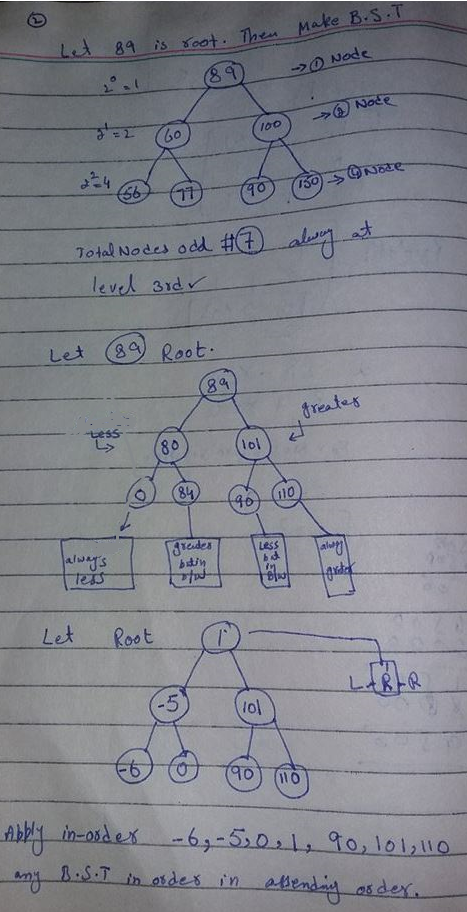 ②
Let 89 is root. Then Make B.S.T
2⁰=1 89 → ① Node
2¹=2 60 100 → ② Node
2²=4 56 77 90 150 → ④ Node
Total Nodes odd # 7 alway at
level 3rd ✓
Let 89 Root.
89
Less 80 101 greater
0 84 90 110
always less
greater but in b/w
Less but in b/w
alway greater
Let Root 1
L-R-R
-5 101
-6 0 90 110
Apply in-order -6, -5, 0, 1, 90, 101, 110
any B.S.T in order in assending order.